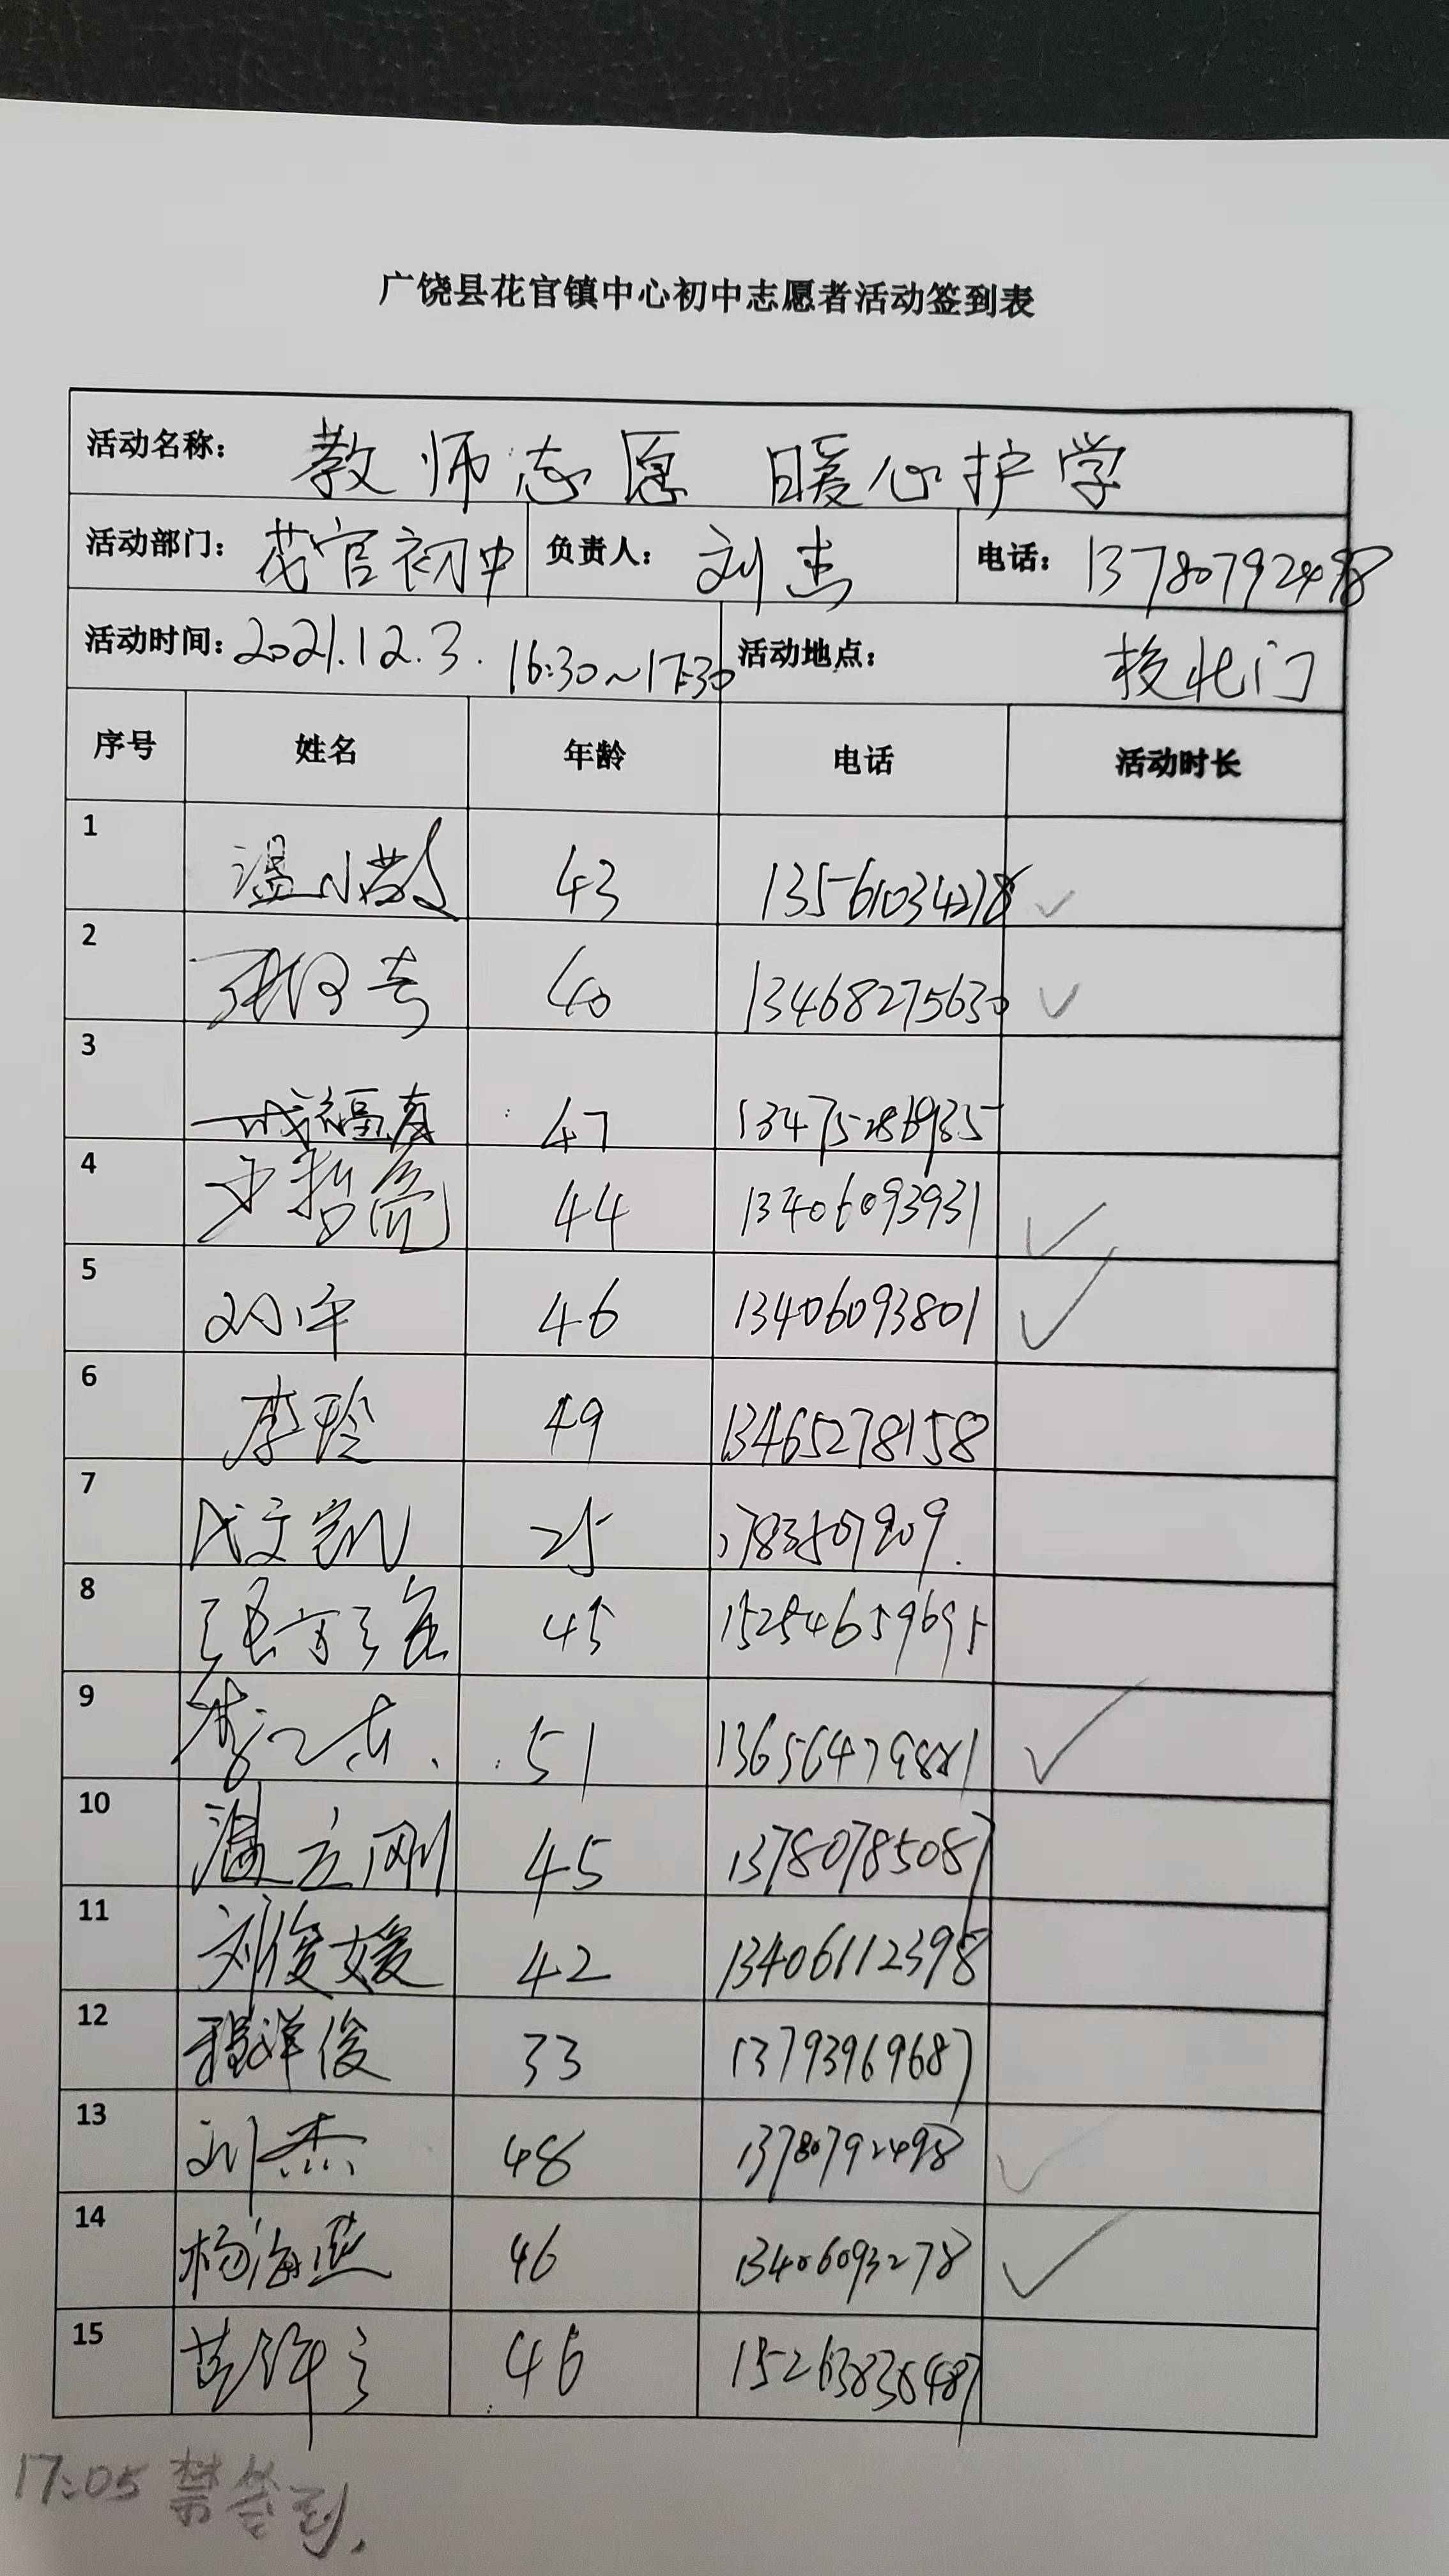 广饶县花官镇中心初中志愿者活动签到表
活动名称： 教师志愿 暖心护学
活动部门： 花官初中 负责人： 刘杰 电话： 13780792498
活动时间： 2021.12.3. 16:30~17:30 活动地点： 校北门
序号 姓名 年龄 电话 活动时长
1 温小 43 13561034278 ✓
2 40 13468275630 ✓
3 成福 47 13475286935
4 44 13406093931 ✓
5 46 13406093801 ✓
6 李玲 49 13465278158
7 成文凯 25
8 45 15254659695
9 李江 51 ✓
10 温立刚 45 13780785087
11 刘俊媛 42 13406112398
12 程洋俊 33 13793969687
13 刘杰 48 13780792498 ✓
14 杨海燕 46 13406093278 ✓
15 46 15263838487
17:05 禁签到.